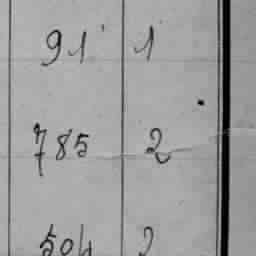 91 1
785 2
504 2